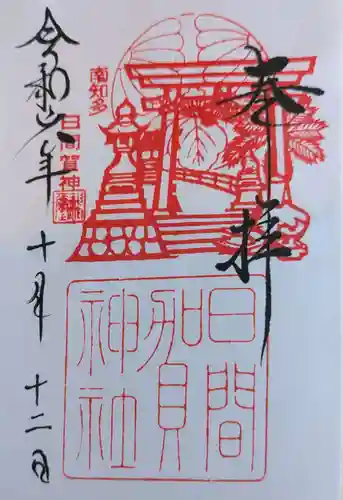 奉拝
南知多
日間賀神社
日間賀神社
令和六年十月十二日